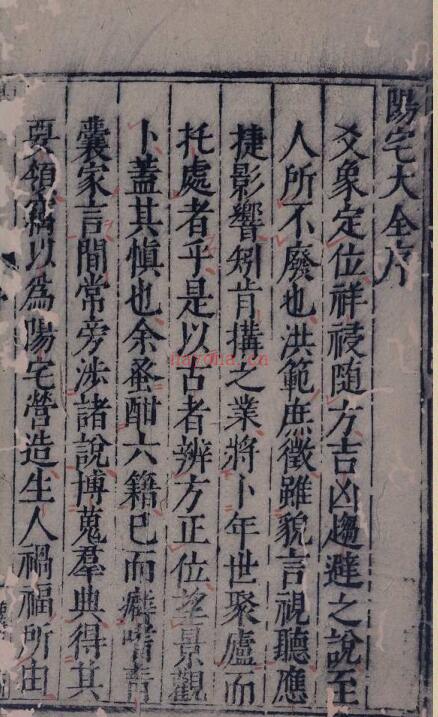 陽宅大全序
爻象定位祥祲随方吉凶趨避之說至
人所不廢也洪範庶徵雖貌言視聽應
捷影響矧肯搆之業將卜年世聚廬而
托處者乎是以古者辨方正位望景觀
卜蓋其慎也余蚤酣六籍已而癖嗜青
囊家言間常旁涉諸說博蒐羣典得其
要領竊以爲陽宅營造生人禍福所由